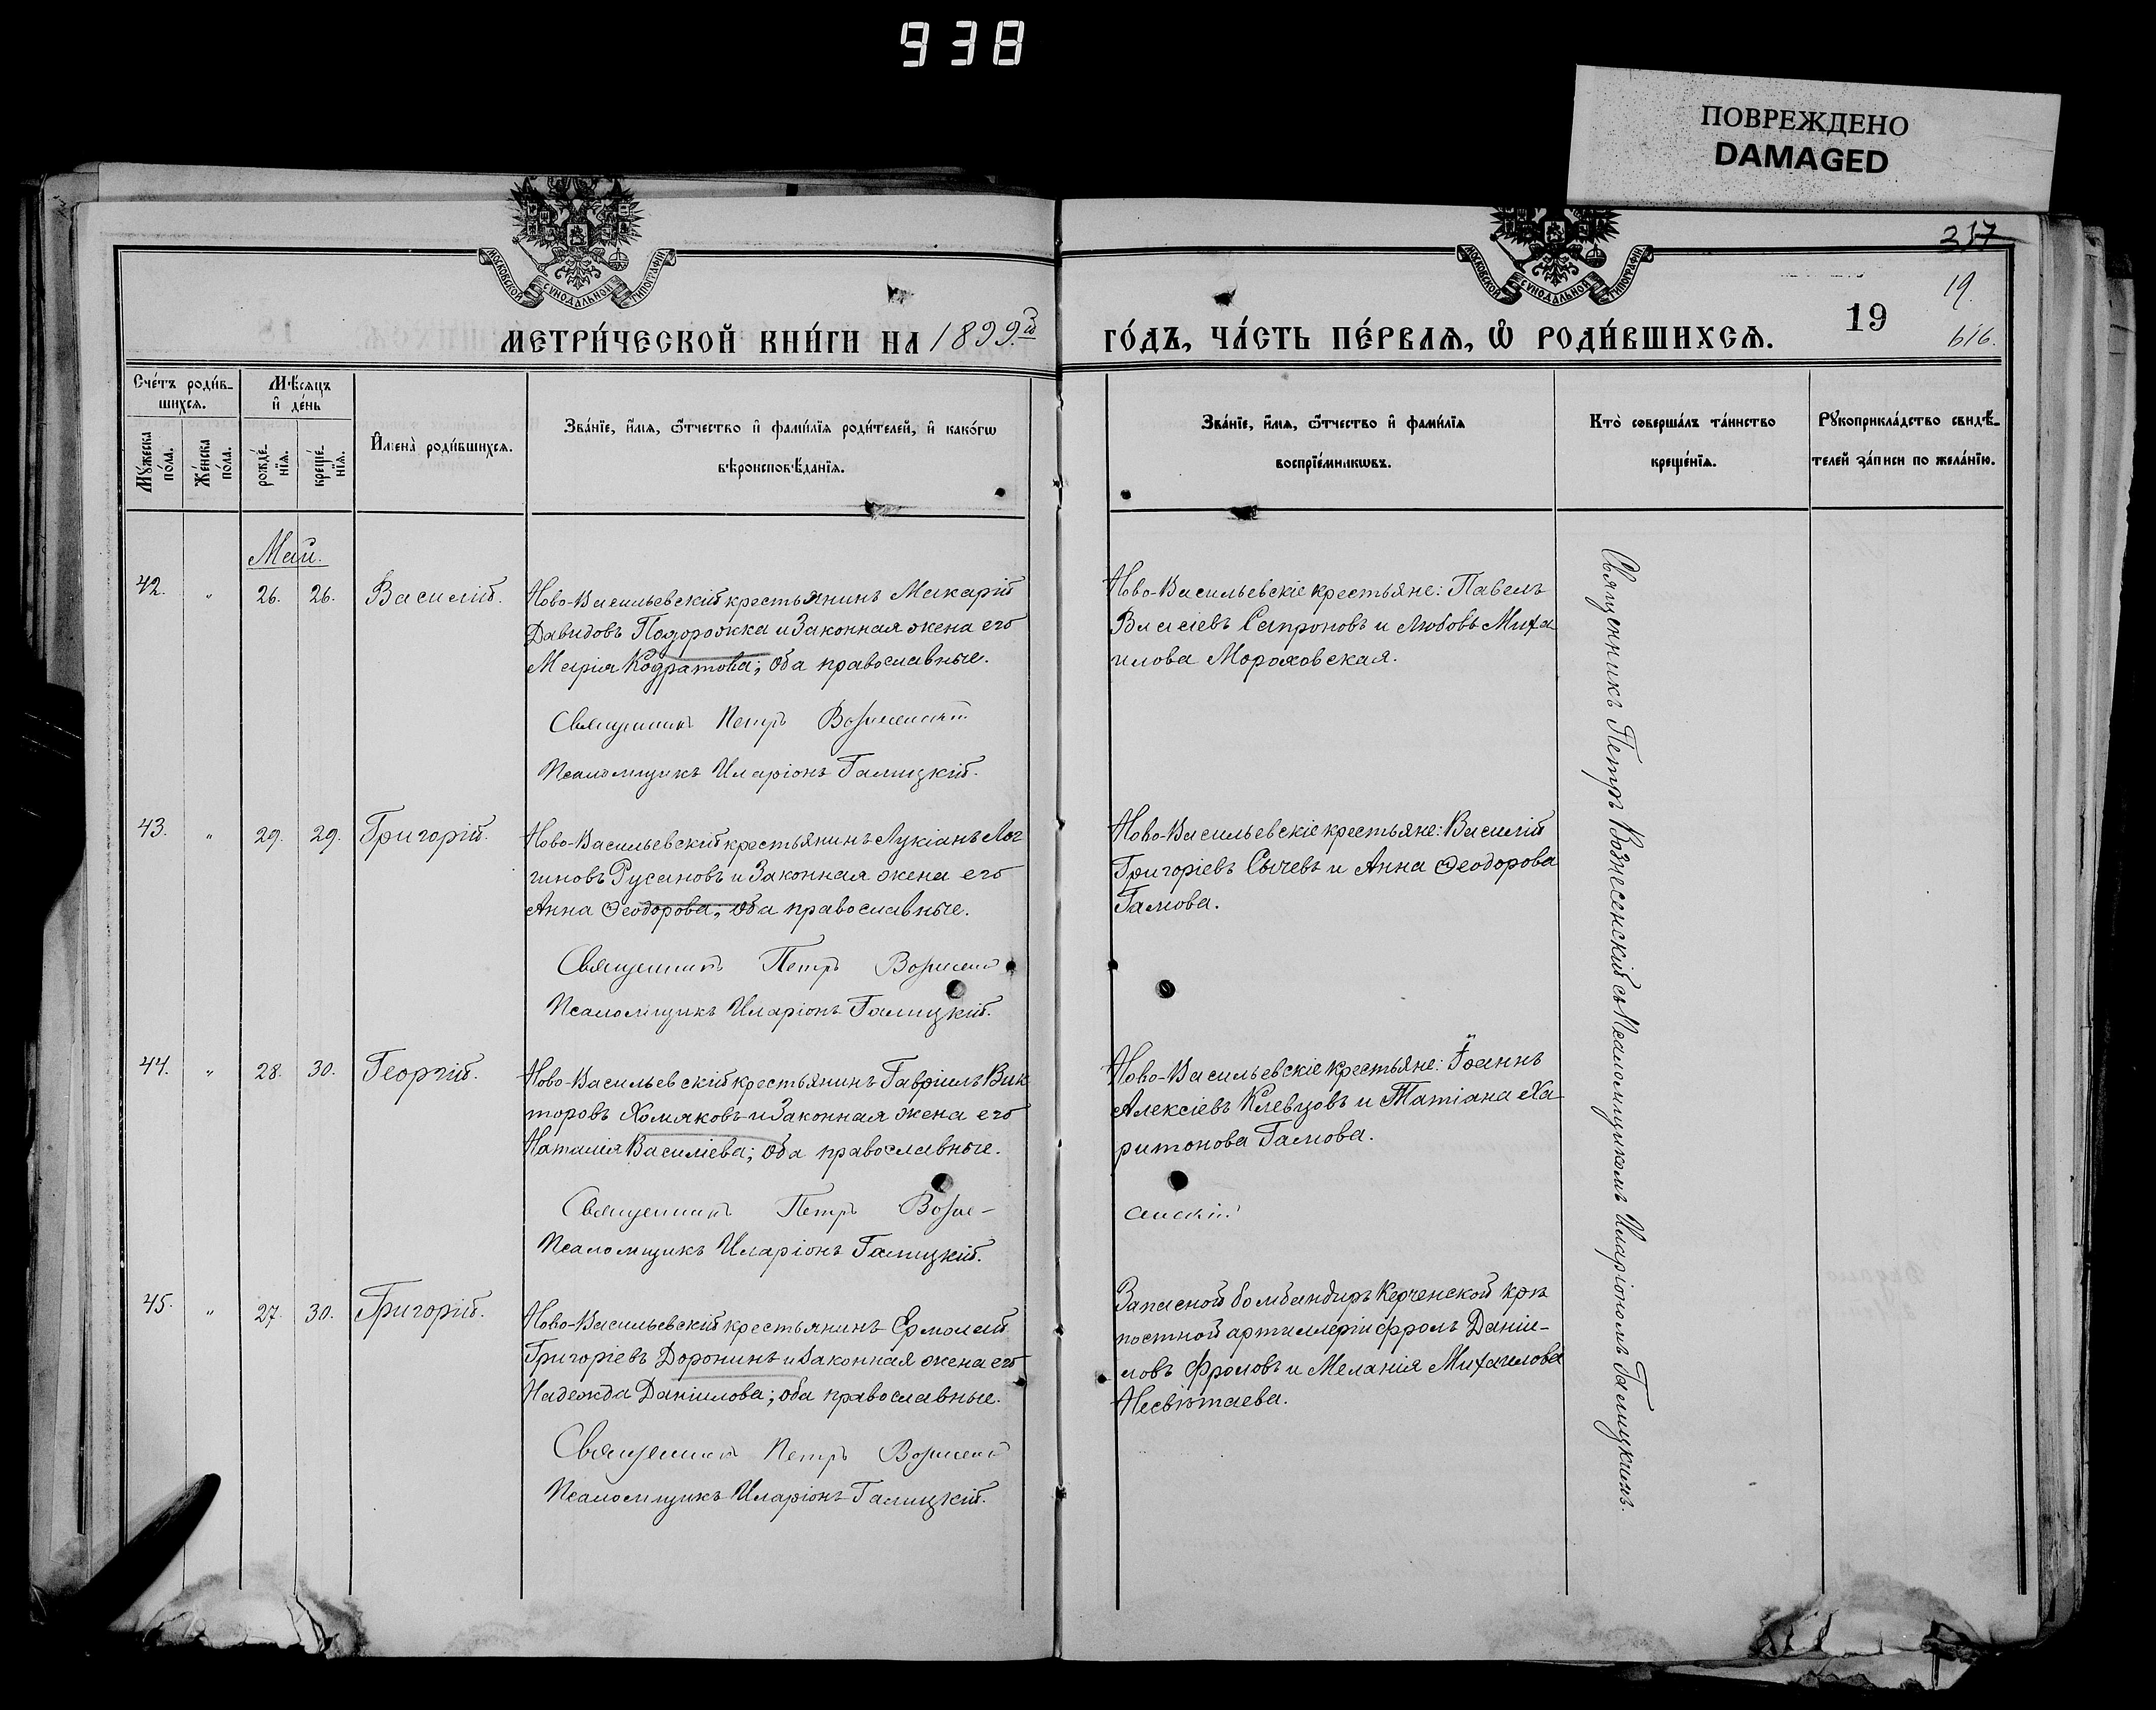 938
ПОВРЕЖДЕНО
DAMAGED
МОСКОВСКОЙ СѴНОДАЛЬНОЙ ТИПОГРАФІИ
МОСКОВСКОЙ СѴНОДАЛЬНОЙ ТИПОГРАФІИ
237
19.
19
616.
МЕТРИ́ЧЕСКОЙ КНИ́ГИ НА 1899.й
ГО́ДЪ, ЧА́СТЬ ПЕ́РВАЯ, Ѡ҆ РОДИ́ВШИХСЯ.
Сче́тъ роди́в-
шихся.
Мꙋ́жеска по́ла.
Же́нска по́ла.
Мѣ́сяцъ
и҆ де́нь
рожде́-
нїя.
креще́-
нїя.
И҆мена̀ роди́вшихся.
Зва́нїе, и҆́мя, ѻ҆́тчество и҆ фами́лїя роди́телей, и҆ како́гѡ
вѣроисповѣ́данїя.
Зва́нїе, и҆́мя, ѻ҆́тчество и҆ фами́лїя
воспрїе́мникѡвъ.
Кто̀ соверша́лъ та́инство
креще́нїя.
Рꙋкоприкла́дство свидѣ́-
телей за́писи по жела́нїю.
Май.
42. " 26. 26. Василій.
Ново-Васильевскій крестьянинъ Макарій
Давидовъ Подорожка и Законная жена его
Марія Кодратова; оба православные.
Священникъ Петръ Вознесенскій
Псаломщикъ Иларіонъ Галицкій.
Ново-Васильевскіе крестьяне: Павелъ
Власіевъ Сапроновъ и Любовь Миха
илова Мороховская.
43. " 29. 29. Григорій.
Ново-Васильевскій крестьянинъ Лукіанъ Лог
гиновъ Русановъ и Законная жена его
Анна Ѳеодорова, оба православные.
Священникъ Петръ
Псаломщикъ Иларіонъ Галицкій.
Ново-Васильевскіе крестьяне: Василій
Григоріевъ Сычевъ и Анна Ѳеодорова
Гамова.
44. " 28. 30. Георгій.
Ново-Васильевскій крестьянинъ Гавріилъ Вик
торовъ Хомяковъ и Законная жена его
Наталія Василіева; оба православные.
Священникъ Петръ Возне-
сенскій
Псаломщикъ Иларіонъ Галицкій.
Ново-Васильевскіе крестьяне: Іоаннъ
Алексіевъ Клевцовъ и Татіана Ха
ритонова Гамова.
45. " 27. 30. Григорій.
Ново-Васильевскій крестьянинъ Ермолай
Григоріевъ Доронинъ и Законная жена его
Надежда Даніилова; оба православные.
Священникъ Петръ
Псаломщикъ Иларіонъ Галицкій.
Запасной бомбандиръ Керченской крѣ
постной артиллеріи Фролъ Даніи-
ловъ Фроловъ и Меланія Михаилова
Несвѣтаева.
Священникъ Петръ Вознесенскій съ Псаломщикомъ Иларіономъ Галицкимъ.